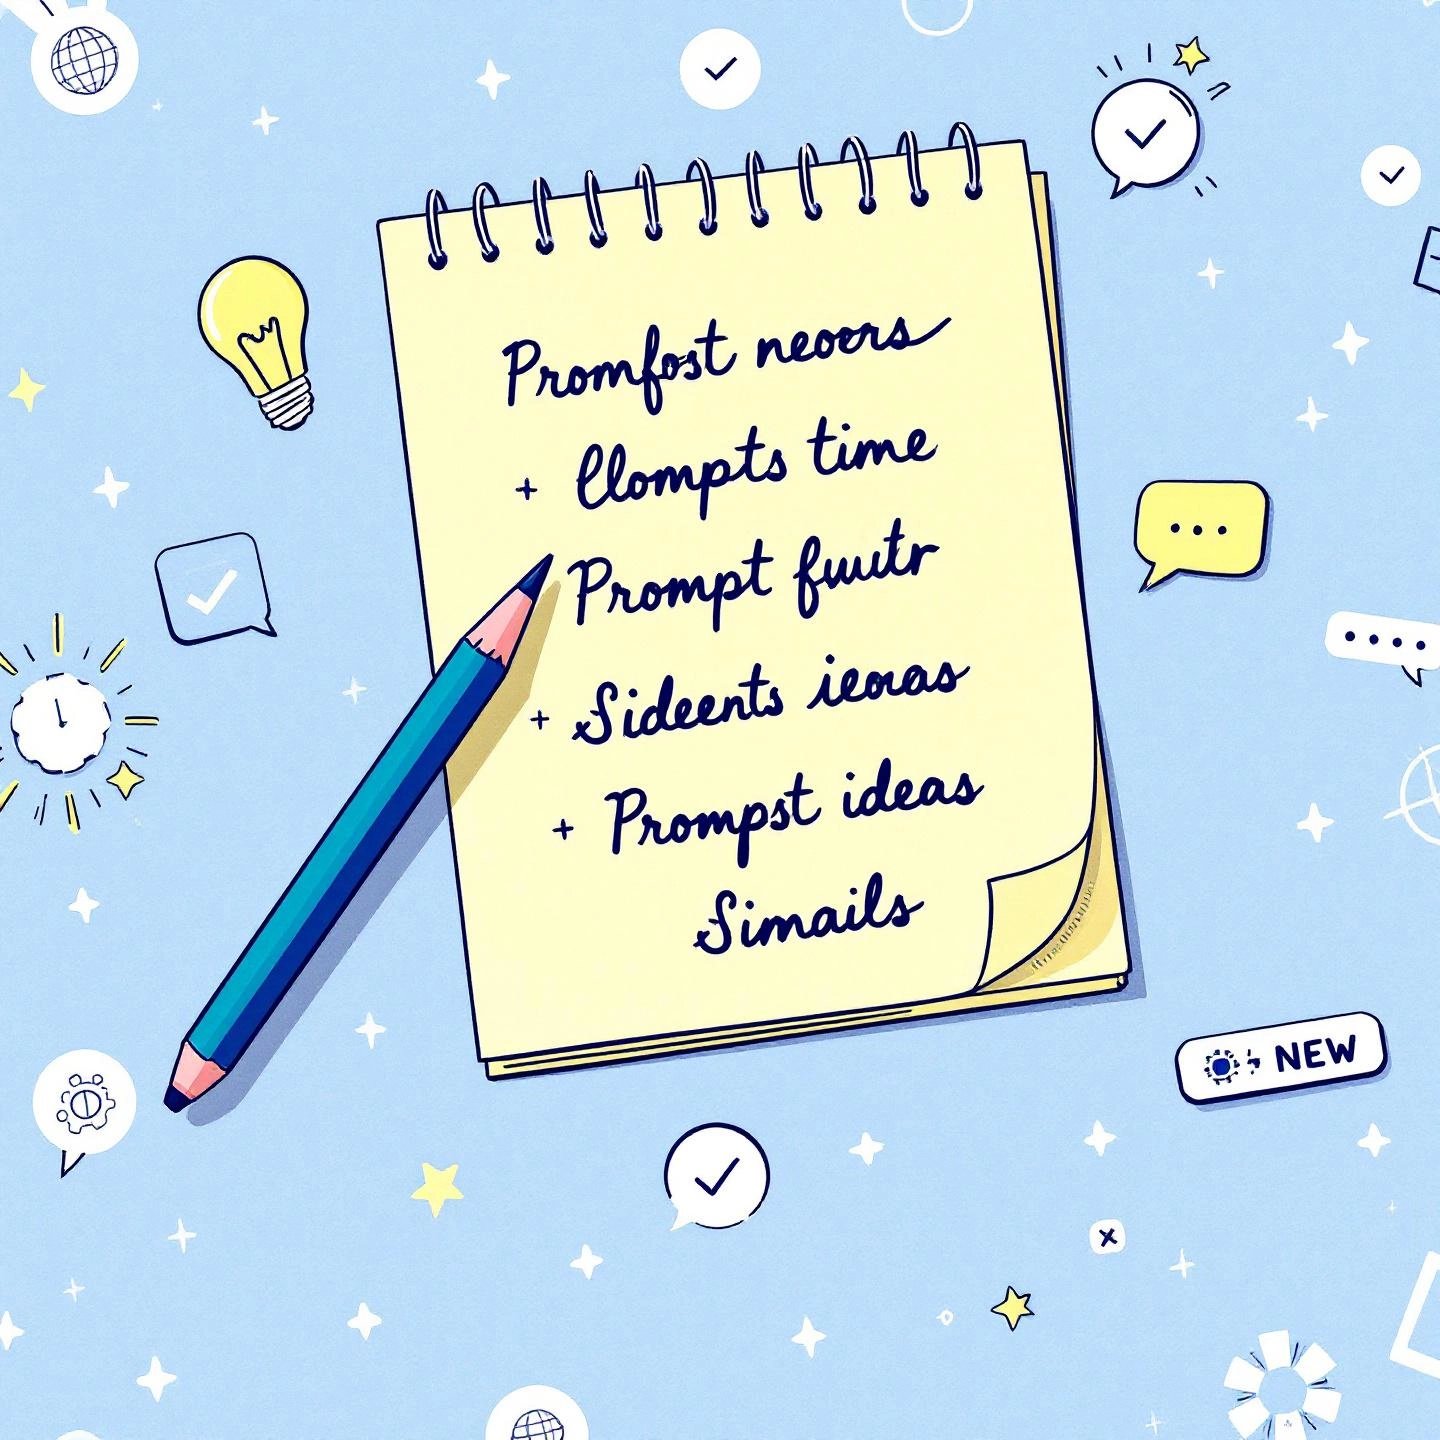 Promfost neoers
+ Clompts time
Prompt fuutr
+ Sideents ieoras
+ Prompst ideas
Simails
NEW